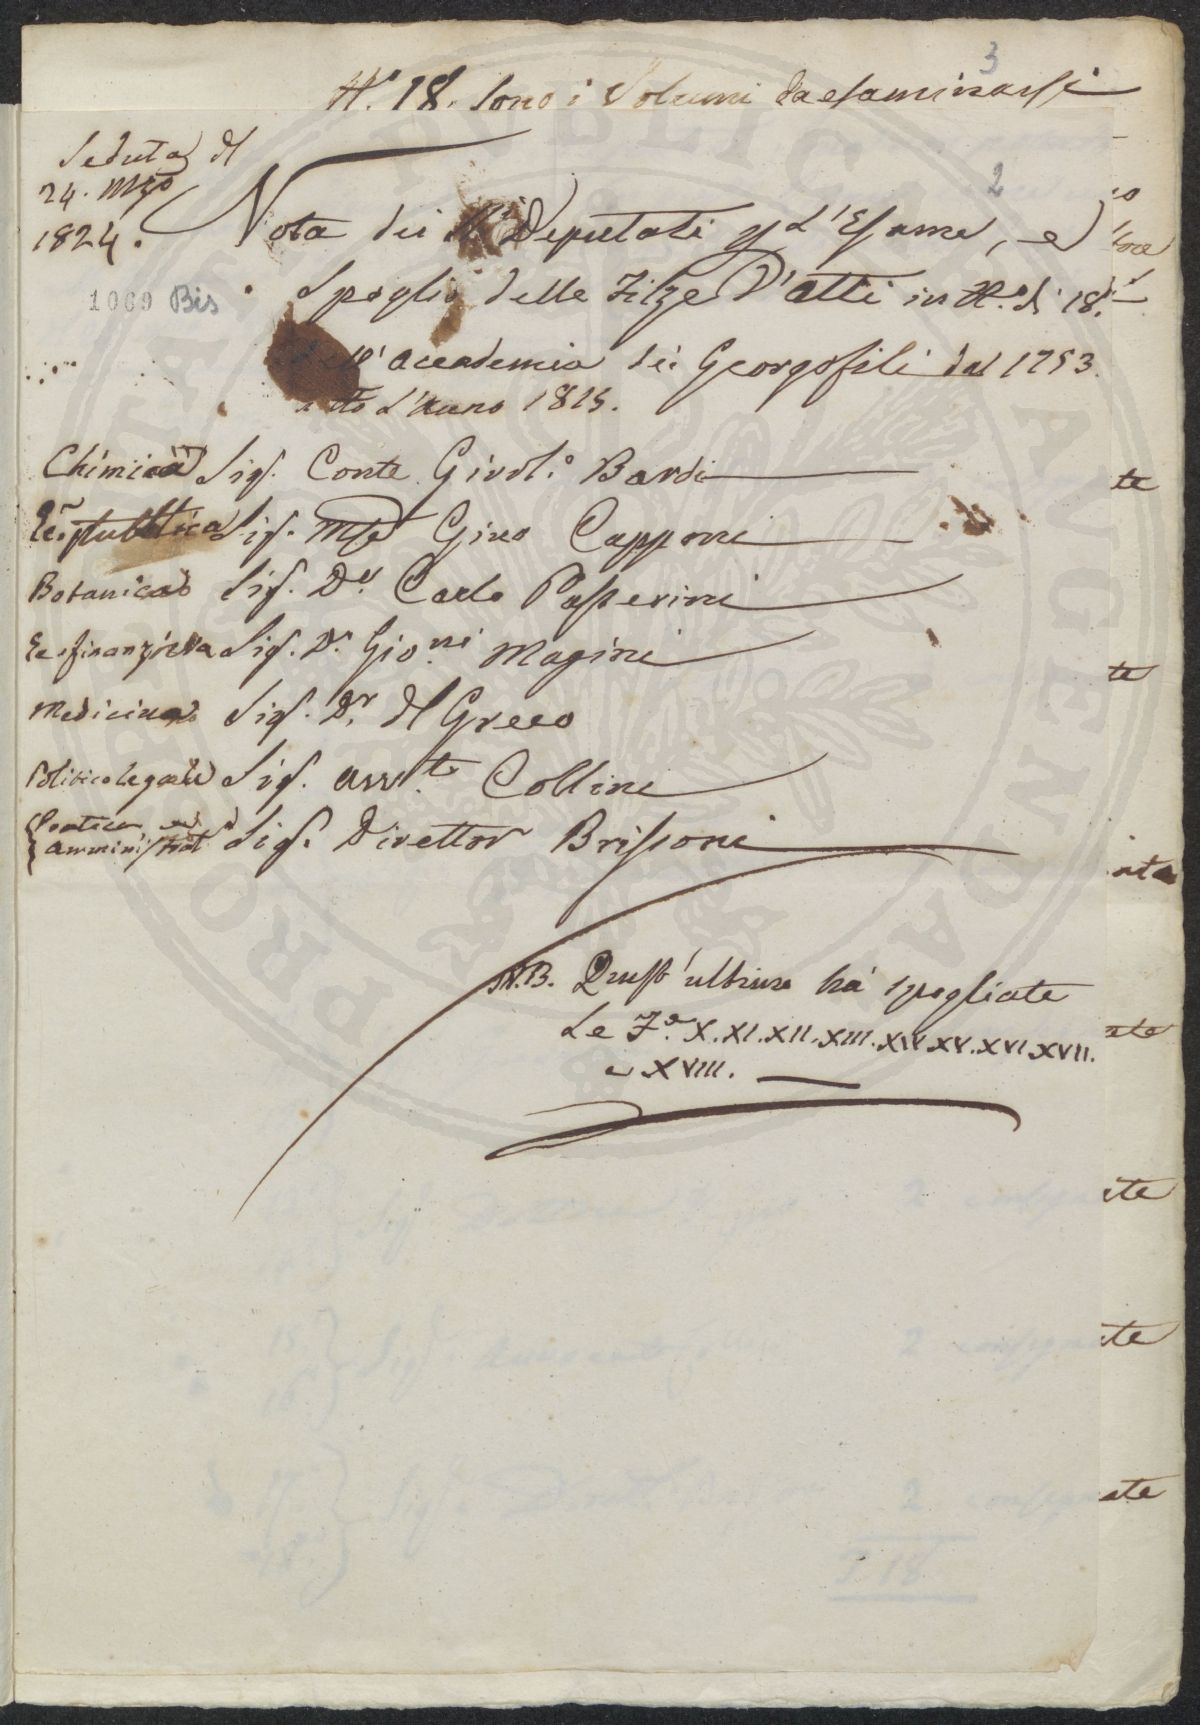 3
N.° 18. Sono i Volumi da esaminarsi
Seduta dl
24. Mzo
1824.
2
Nota dei SS.i Deputati p l'Esame, e
1069 Bis
Spoglio delle Filze d'Atti in N.° di 18.
dell'Accademia dei Georgofili dal 1753.
a tto l'Anno 1815.
Chimica Sig. Conte Girol.° Bardi
Ec. pubblica Sig. Mse Gino Capponi
Botanica Sig. Dr. Carlo Passerini
Ec. finanziera Sig. Dr. Gio.ni Magini
Medicina Sig. Dr. Dl Greco
Politico legale Sig. Avv.to Collini
Pratica, ed
Amminist Sig. Direttor Brissoni
N.B. Quest'ultimo há spogliate
Le Fe. X. XI. XII. XIII. XIV. XV. XVI. XVII.
e XVIII.
te
te
ata
ate
ate
ate
ate